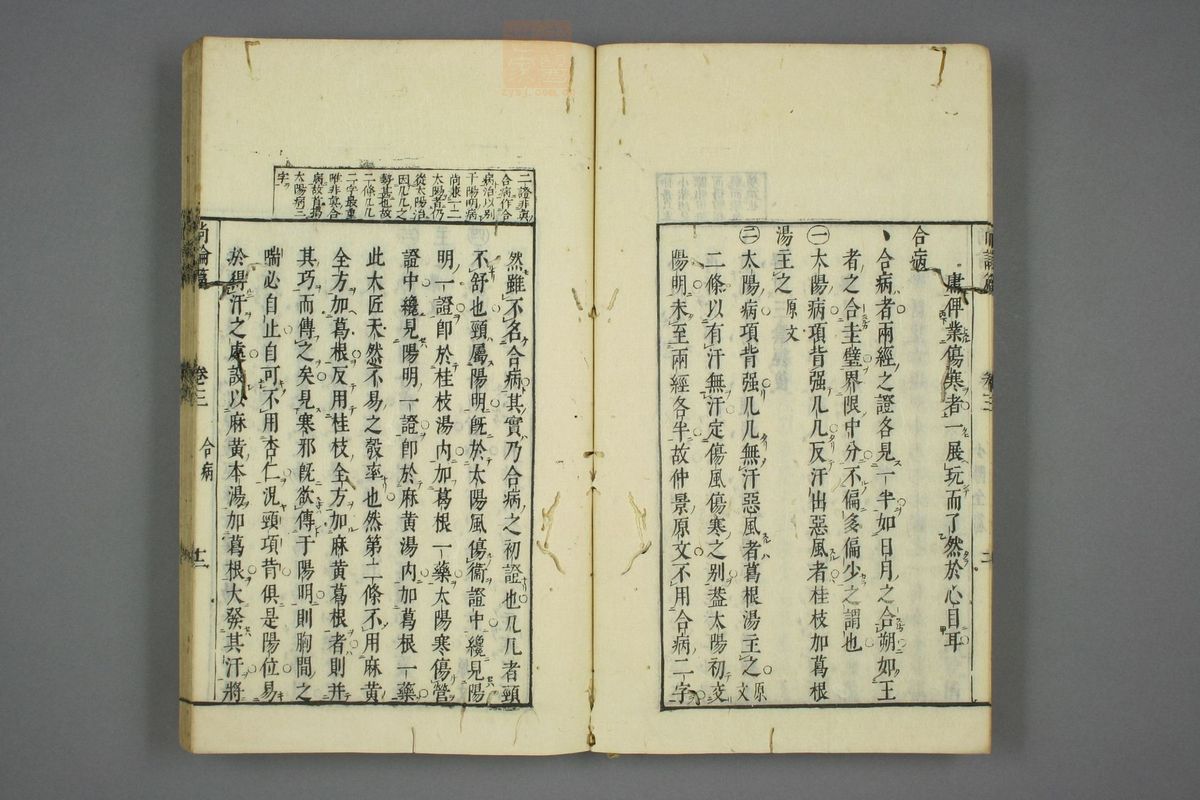 庸俾業傷寒者一展玩而了然於心目耳
合病
合病者兩經之證各見一半如日月之合朔如王
者之合圭璧界限中分不偏多偏少之謂也
㊀太陽病項背强几几反汗出惡風者桂枝加葛根
湯主之原文
㊁太陽病項背强几几無汗惡風者葛根湯主之原文
二條以有汗無汗定傷風傷寒之别葢太陽初交
陽明未至兩經各半故仲景原文不用合病二字
二證非真
合病作合
病治以别
于陽明病
尚兼一二
太陽者仍
從太陽治
因几几之
勢甚也故
二條几几
二字最重
唯非真合
病故首揭
太陽病三
字
然雖不名合病其實乃合病之初證也几几者頸
不舒也頸屬陽明旣於太陽風傷衞證中纔見陽
明一證卽於桂枝湯内加葛根一藥太陽寒傷營
證中纔見陽明一證卽於麻黄湯内加葛根一藥
此大匠天然不易之彀率也然第二條不用麻黄
全方加葛根反用桂枝全方加麻黄葛根者則并
其巧而傳之矣見寒邪旣欲傳于陽明則胸間之
喘必自止自可不用杏仁況頸項背俱是陽位易
於得汗之處設以麻黄本湯加葛根大發其汗將
尚論篇
卷三
合病
十二